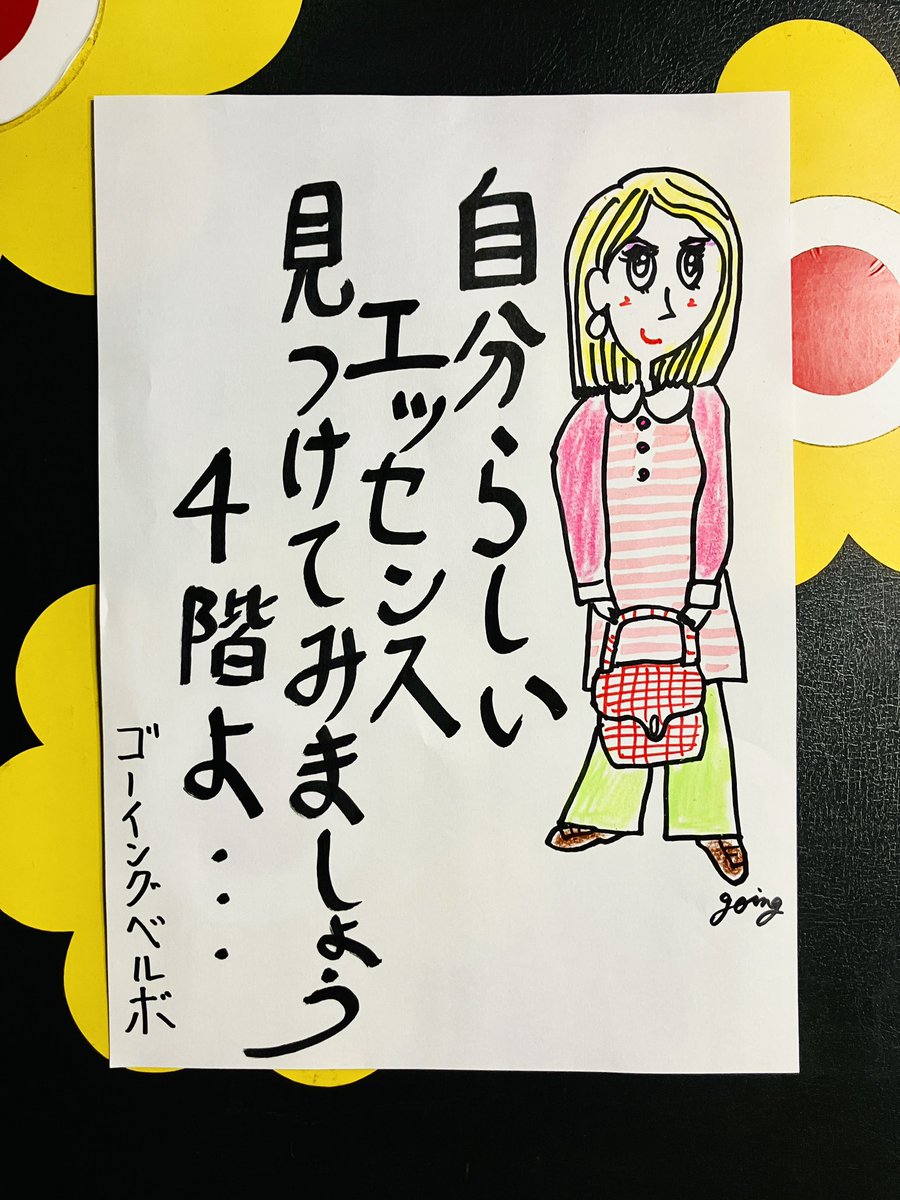 自分らしい
エッセンス
見つけてみましょう
4階よ・・・
ゴーイングベルボ
going